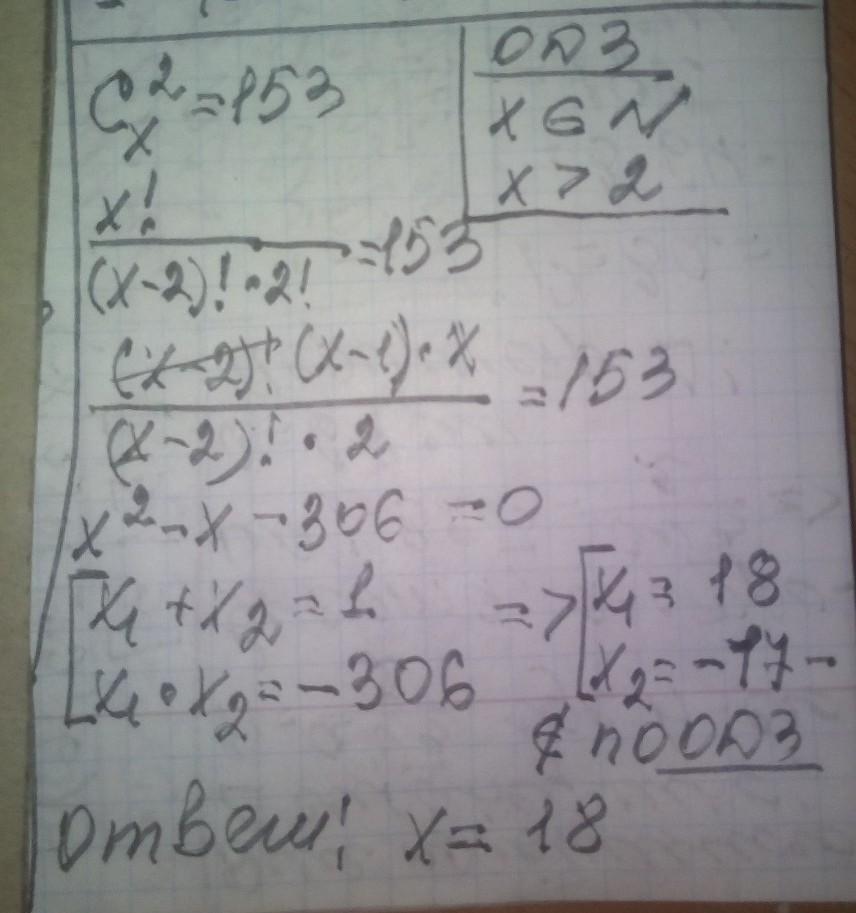 C²ₓ = 153
ОДЗ
x ∈ N
x > 2
x!
(x-2)! · 2! = 153
(x-2)! (x-1) · x
(x-2)! · 2 = 153
x² - x - 306 = 0
[x₁ + x₂ = 1 => [x₁ = 18
x₁ · x₂ = -306 x₂ = -17 -
∉ по ОДЗ
Ответ! x = 18